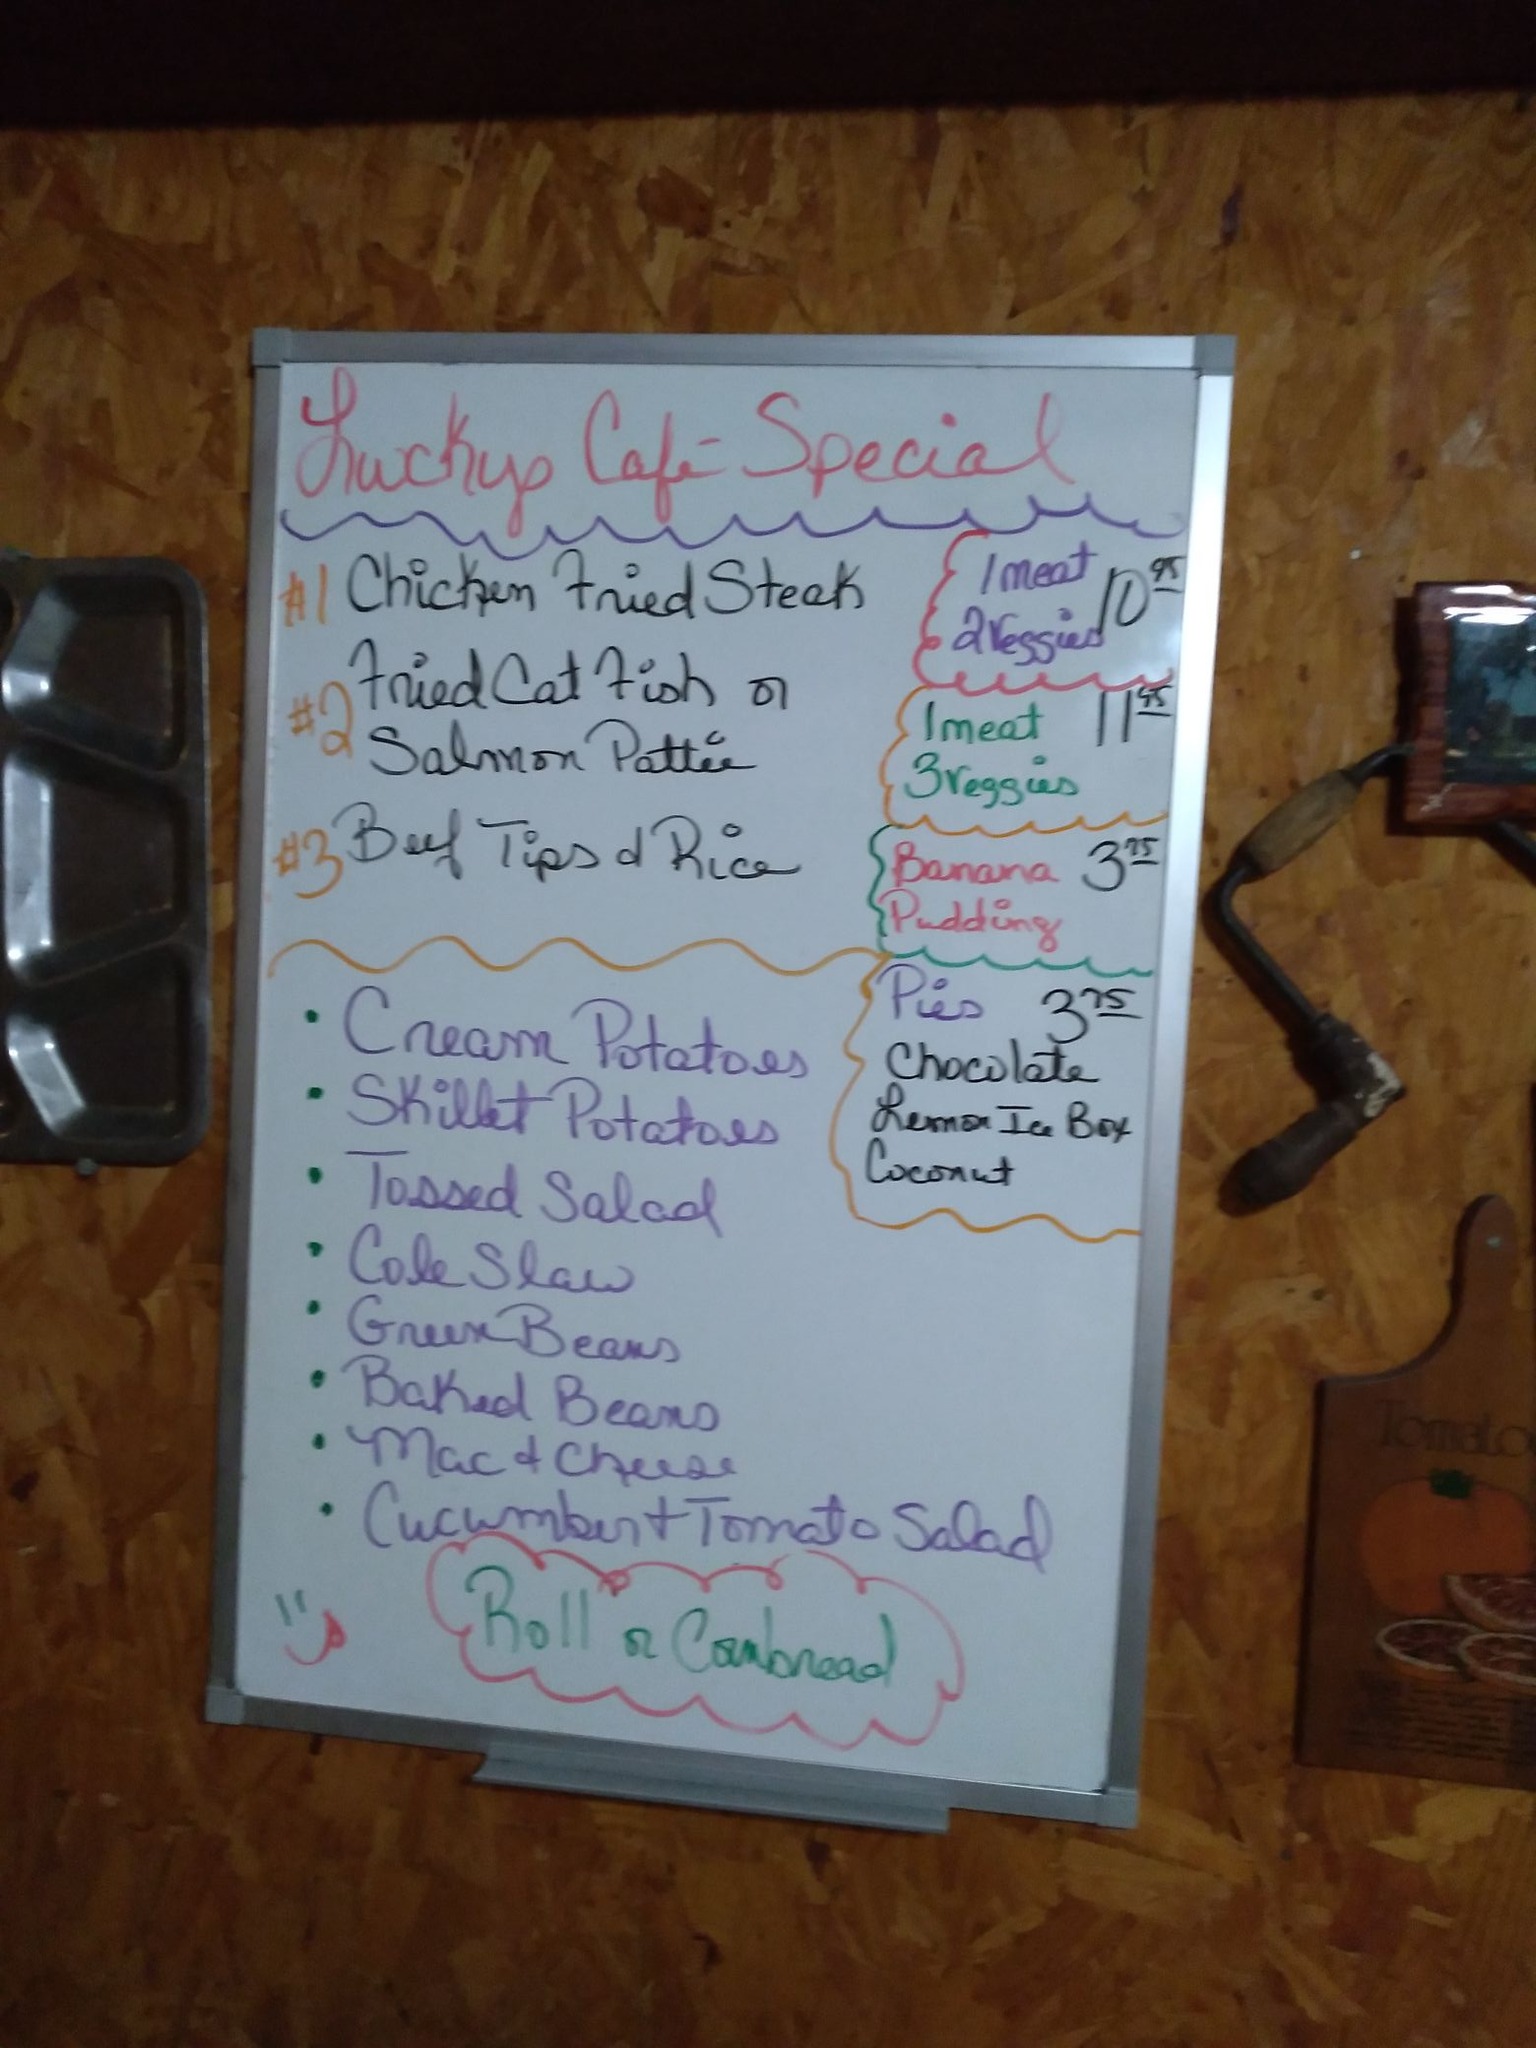 Luckys Café Special
#1 Chicken Fried Steak
#2 Fried Cat Fish or
Salmon Pattie
#3 Beef Tips & Rice
1 meat 10.95
2 Veggies
1 meat 11.95
3 Veggies
Banana 3.75
Pudding
Pies 3.75
Chocolate
Lemon Ice Box
Coconut
• Cream Potatoes
• Skillet Potatoes
• Tossed Salad
• Cole Slaw
• Green Beans
• Baked Beans
• Mac & Cheese
• Cucumber + Tomato Salad
Roll or Cornbread